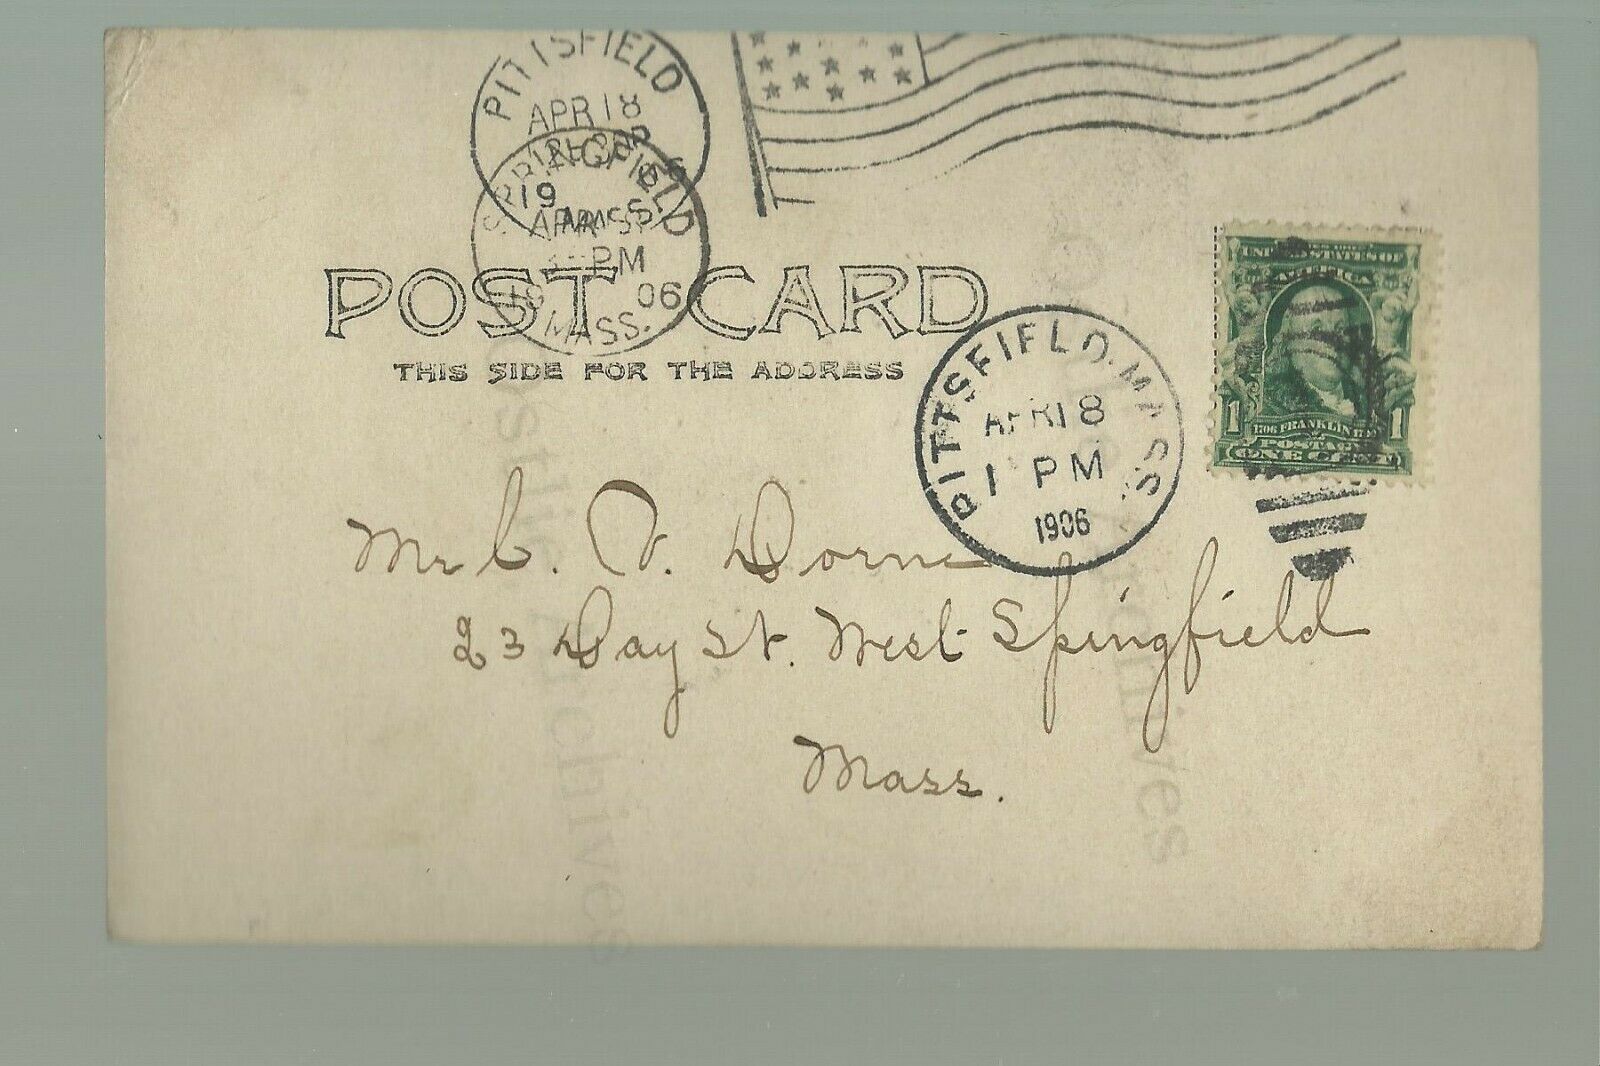 PITTSFIELD
APR 18
19
MASS.
SPRINGFIELD
APR
PM
06
MASS.
POST CARD
THIS SIDE FOR THE ADDRESS
PITTSFIELD. MASS
APR 18
1 PM
1906
UNITED STATES OF
AMERICA
1 1
1706 FRANKLIN
POSTAGE
ONE CENT
Mr C. V. Dorne
23 Day St. West Springfield
Mass.
Archives
Archives